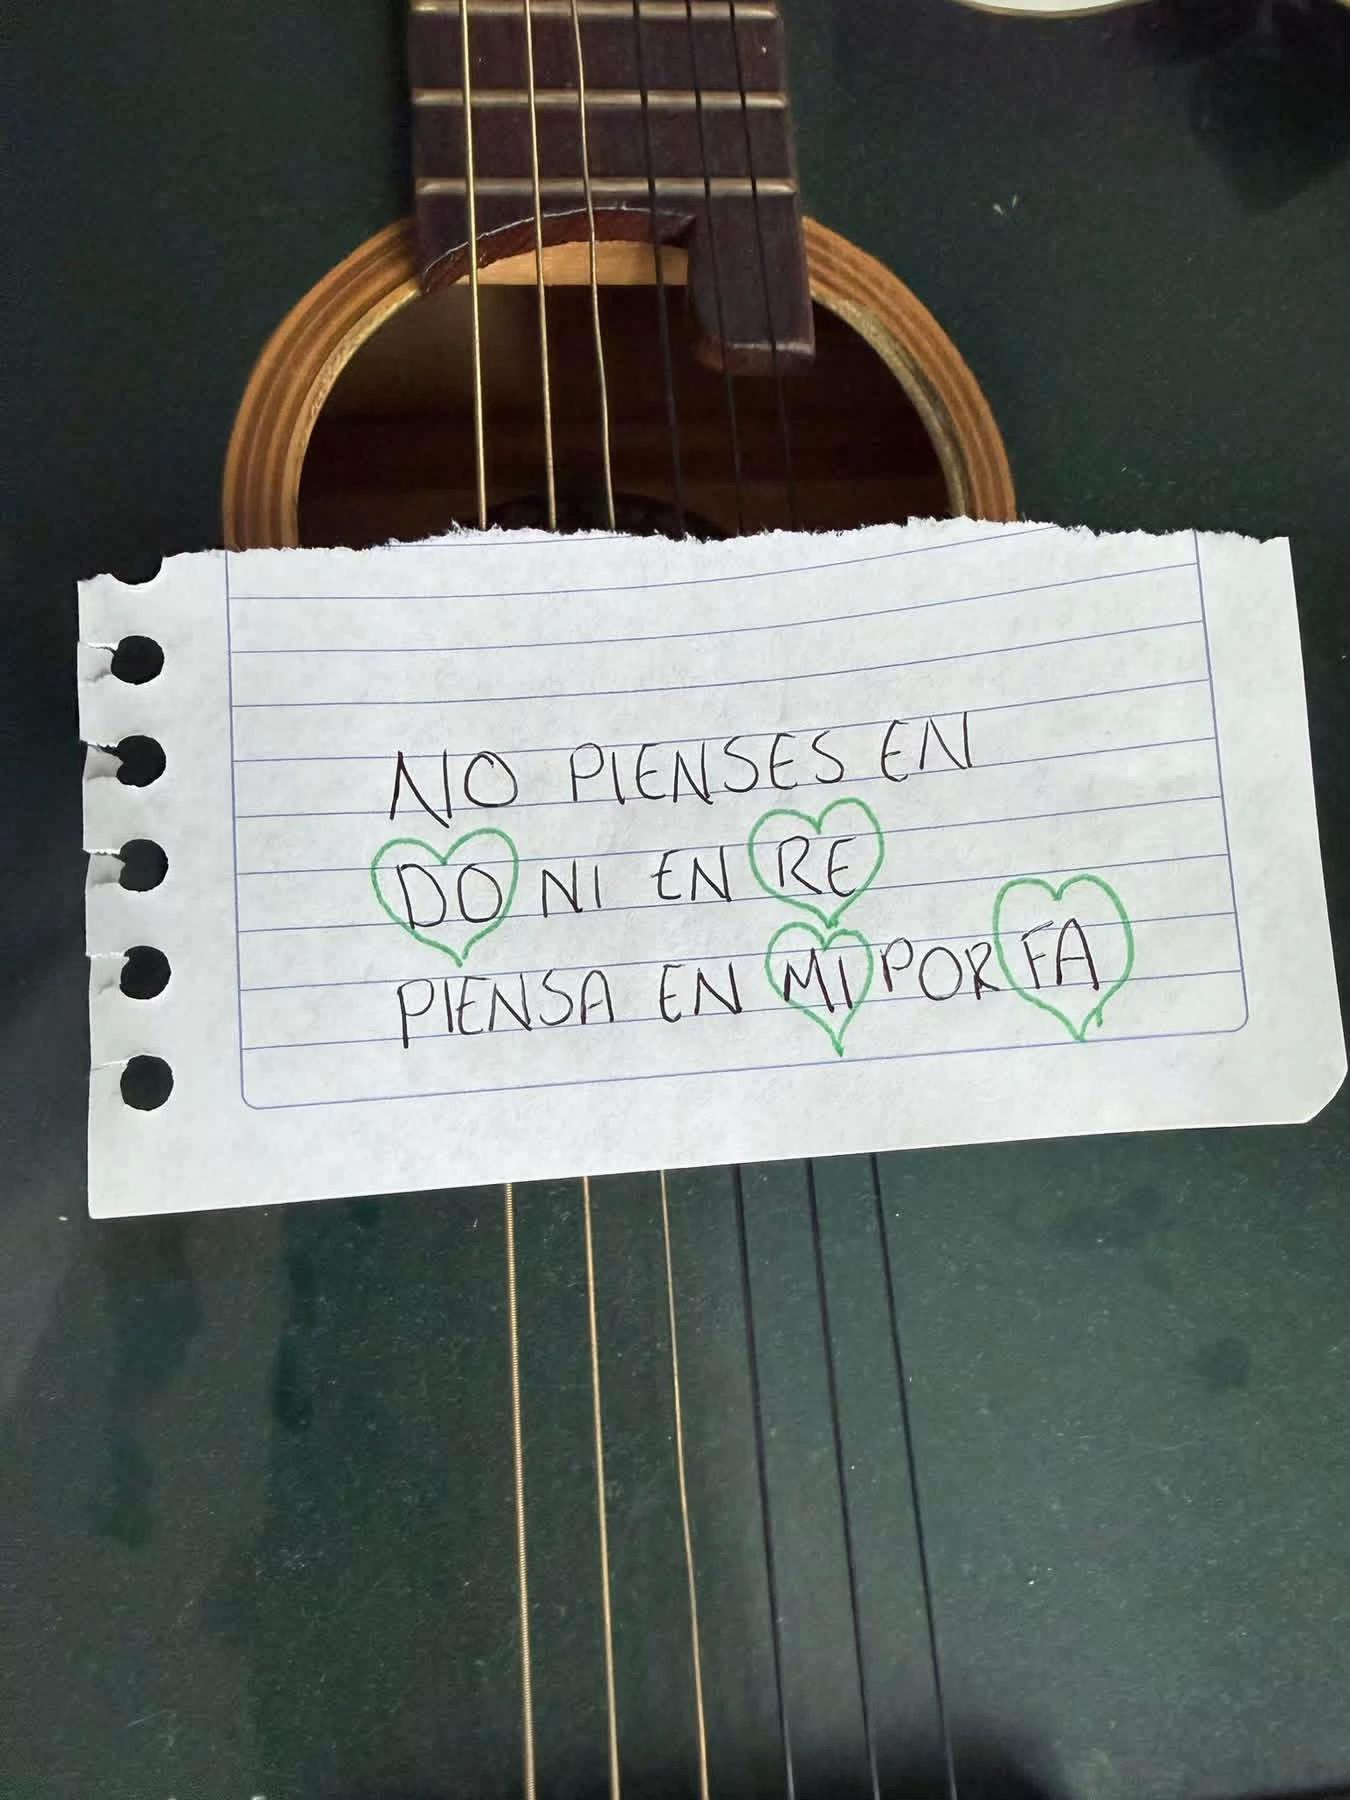 NO PIENSES EN
DO NI EN RE
PIENSA EN MI POR FA